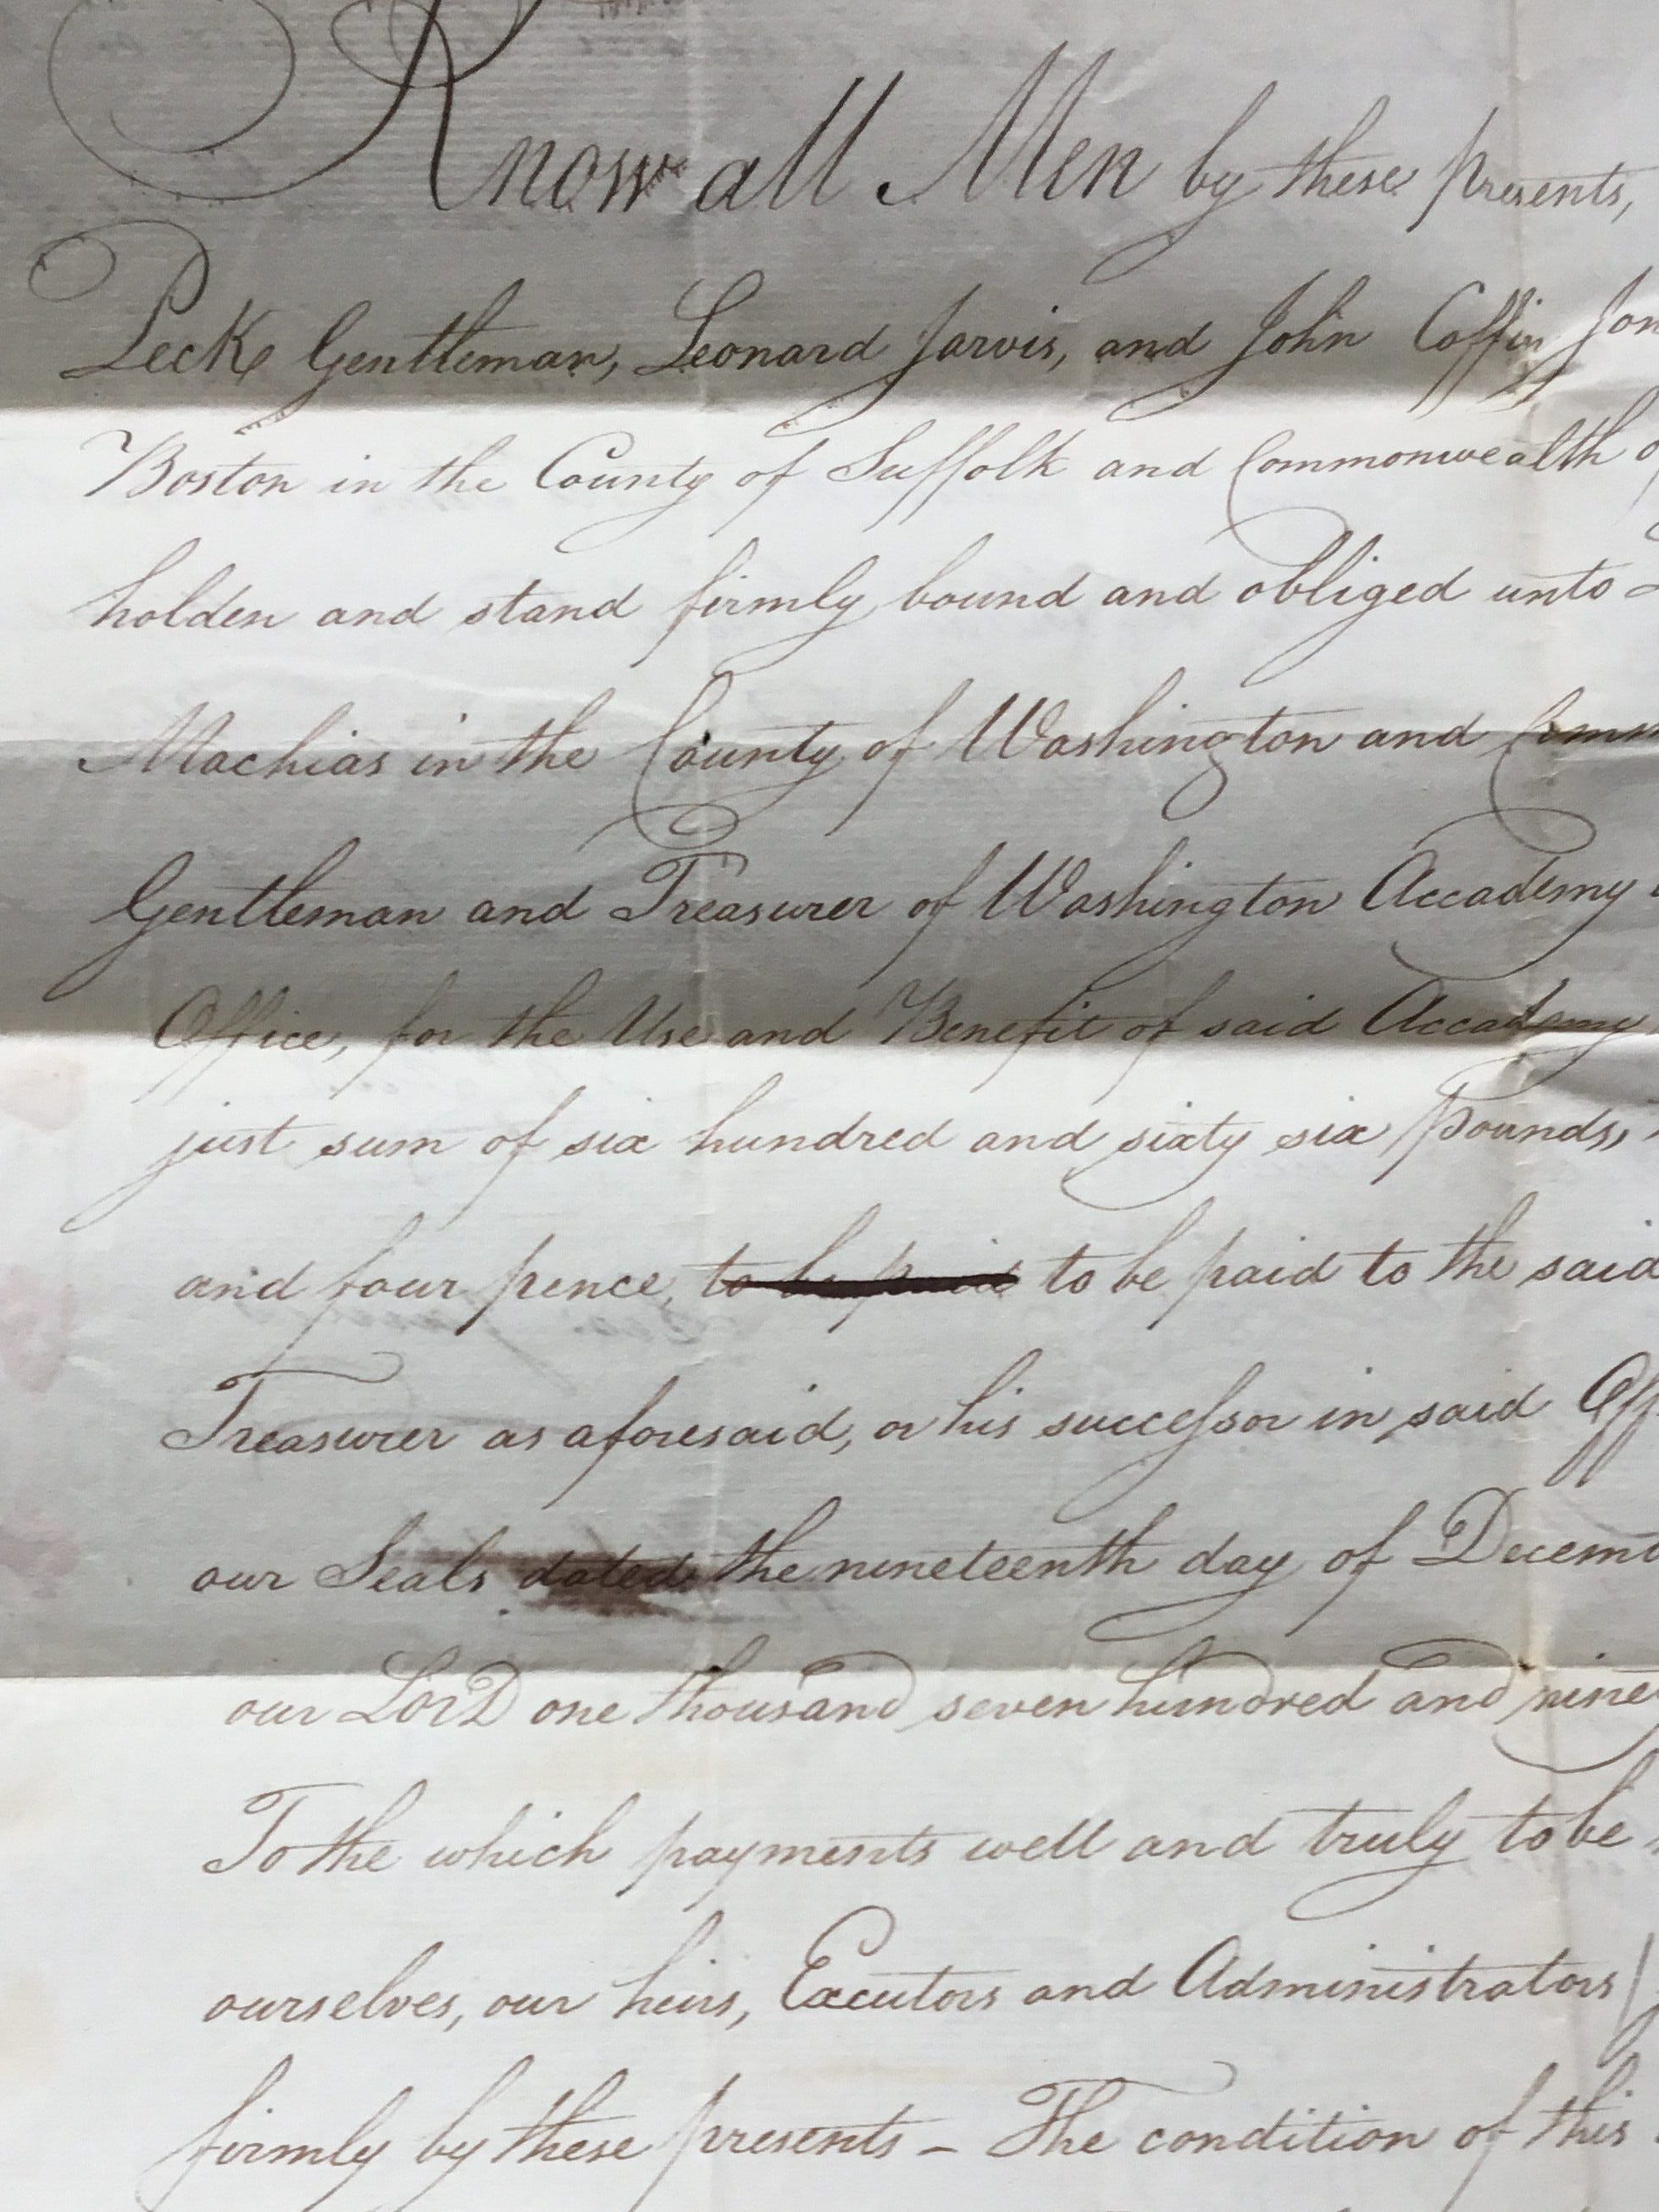 Know all Men by these presents,
Peck Gentleman, Leonard Jarvis, and John Coffin Jon
Boston in the County of Suffolk and Commonwealth o
holden and stand firmly bound and obliged unto
Machias in the County of Washington and Comm
Gentleman and Treasurer of Washington Accademy
Office, for the Use and Benefit of said Accademy
just sum of six hundred and sixty six pounds,
and four pence, to be paid to be paid to the said
Treasurer as aforesaid, or his successor in said Off
our Seals dated the nineteenth day of Decem
our LorD one thousand seven hundred and nine
To the which payments well and truly to be
ourselves, our heirs, Executors and Administrators
firmly by these presents – The condition of this